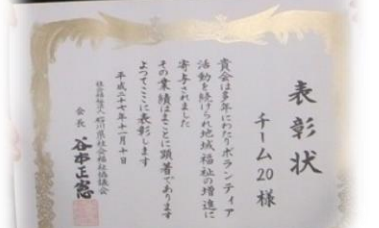 表彰状
チーム20様
貴会は多年にわたりボランティア
活動を続けられ地域福祉の増進に
寄与されました
その業績はまことに顕著であります
よつてここに表彰します
平成二十七年十一月十日
社会福祉法人 石川県社会福祉協議会
会長 谷本正憲